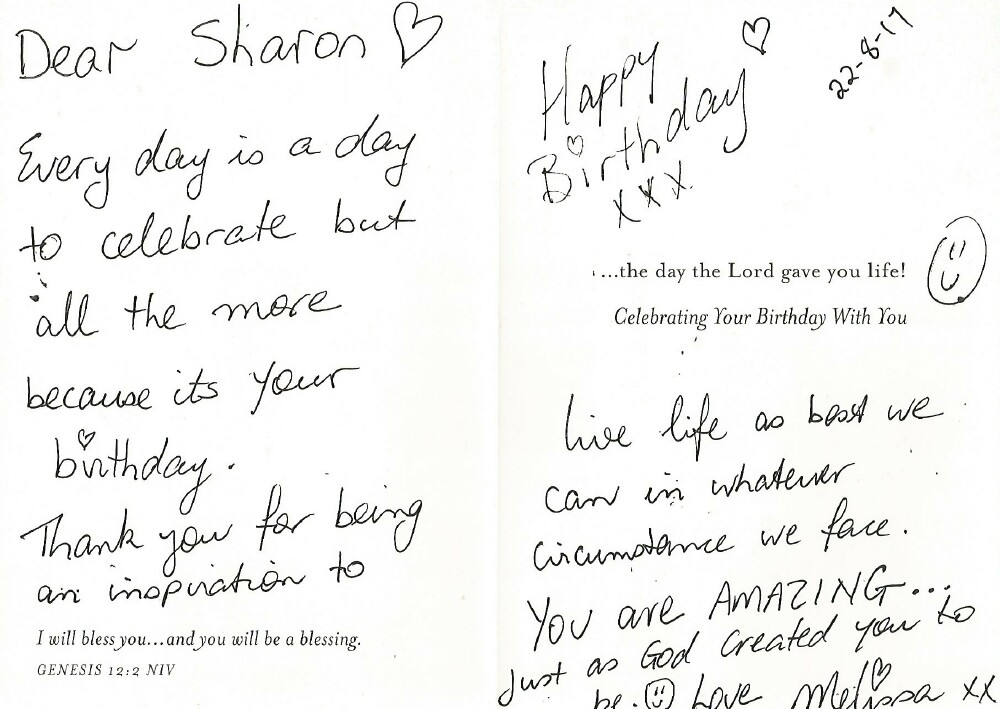 Dear Sharon
Every day is a day
to celebrate but
all the more
because its your
birthday.
Thank you for being
an inspiration to
I will bless you...and you will be a blessing.
GENESIS 12:2 NIV
Happy
Birthday
xxx
22-8-17
...the day the Lord gave you life!
Celebrating Your Birthday With You
live life as best we
can in whatever
circumstance we face.
You are AMAZING...
Just as God created you to
be. Love Melissa xx